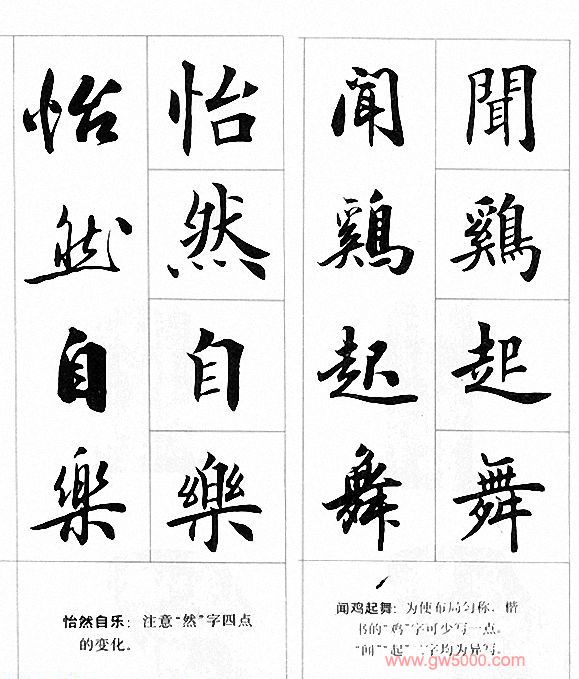 聞鷄起舞
聞鷄起舞
闻鸡起舞：为使布局匀称，楷
书的“鸡”字可少写一点。
“闻”“起”二字均为异写。
怡然自樂
怡然自樂
怡然自乐：注意“然”字四点
的变化。
www.gw5000.com